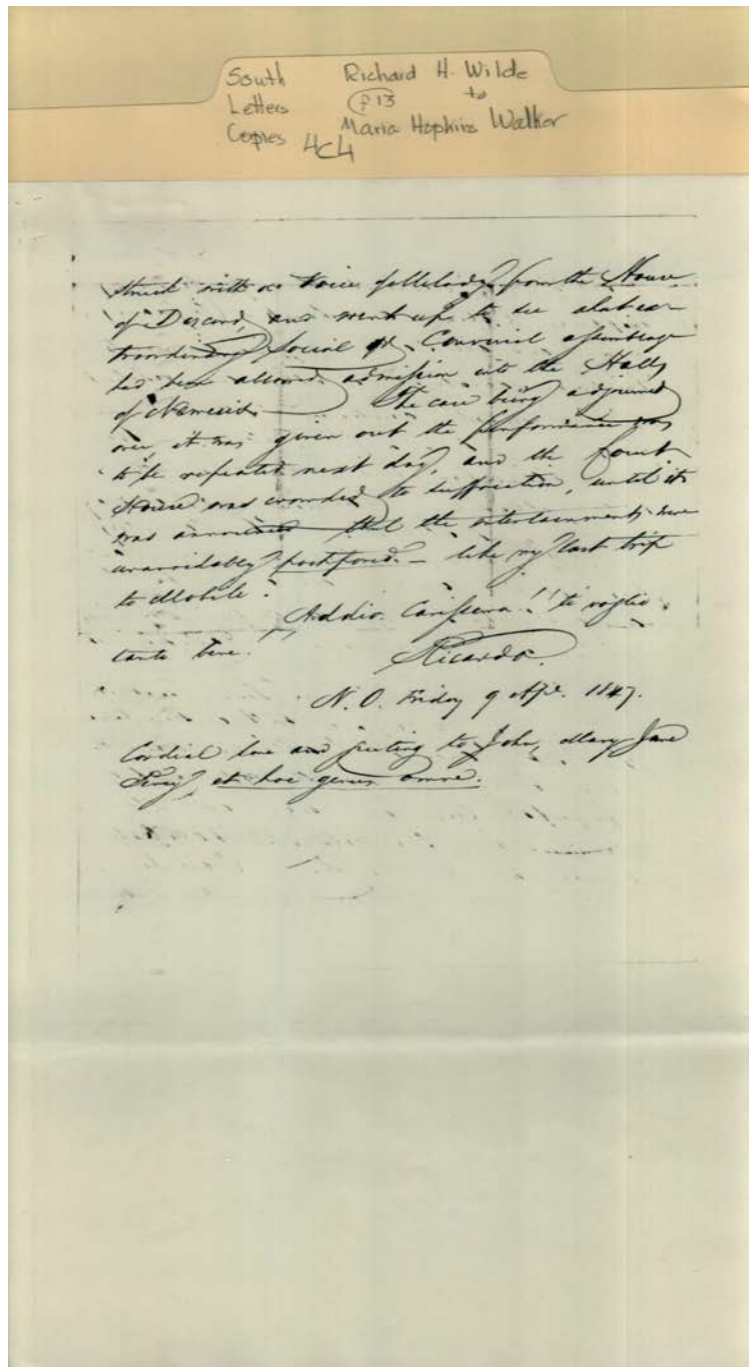 South Richard H. Wilde
Letters P13 to
Copies 4c4 Maria Hopkins Walker
struck with a Voice of Melody from the House
of Discord, and went up to see what ex-
traordinary Social or Convivial assemblage
had been allowed admission into the Halls
of Nemesis — The case being adjourned
over, it was given out the performance was
to be repeated next day, and the Court
House was crowded to suffocation, until it
was announced that the entertainments were
unavoidably postponed — like my last trip
to Mobile.
Addio Carissima!! ti voglio
tanto bene!
Ricardo.
N. O. Friday 9 Apl. 1847.
Cordial love and greeting to John, Mary Jane
et hoc genus omne.